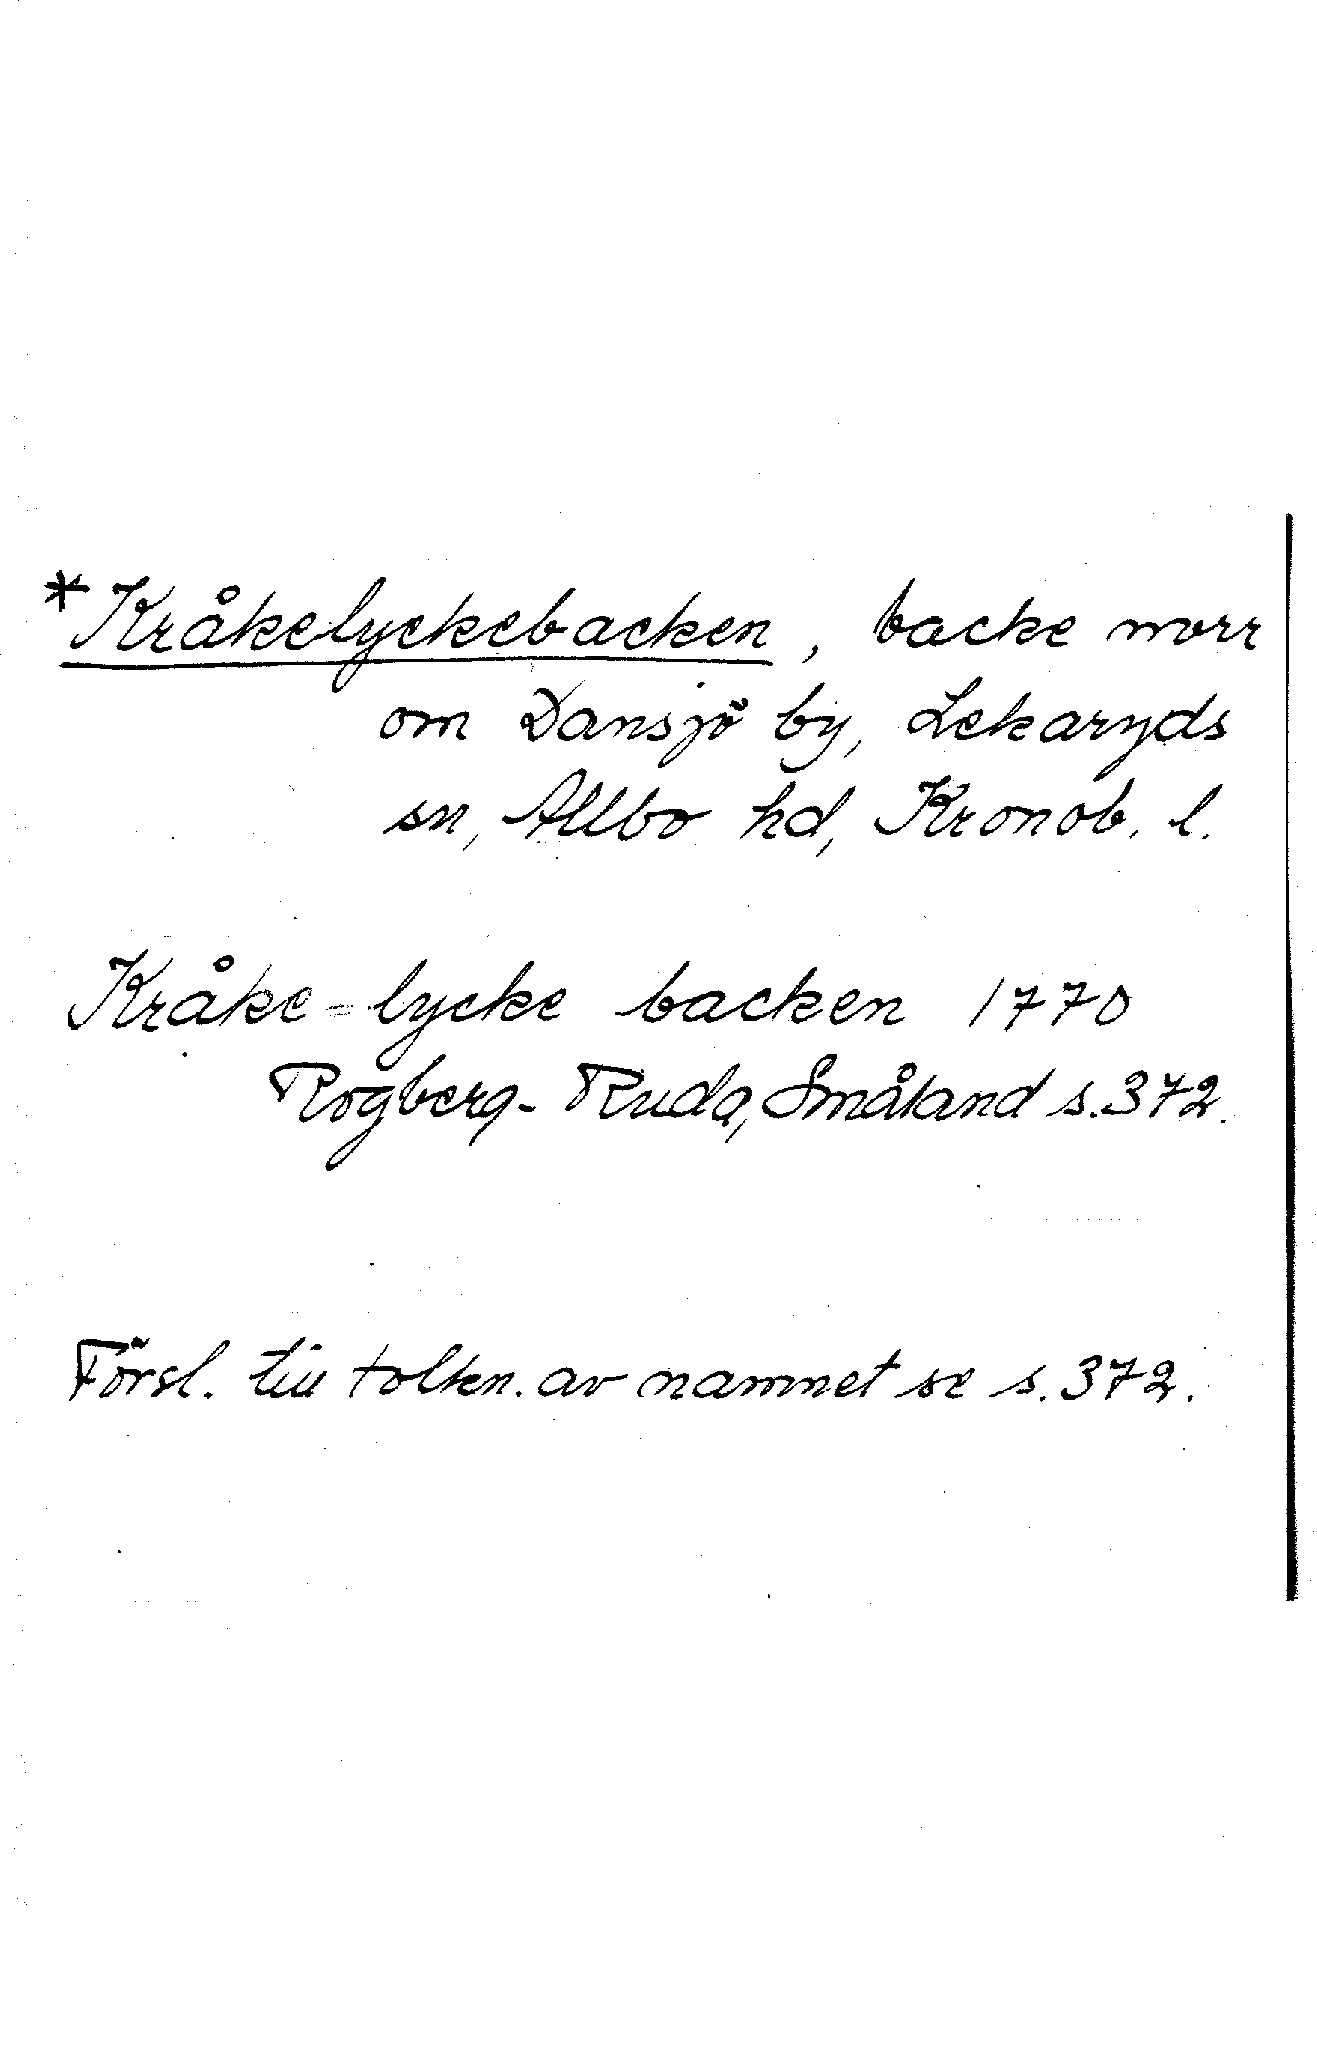 *Kråkelyckebacken, backe norr
om Dansjö by, Lekaryds
sn, Allbo hd, Kronob. l.
Kråke-lycke backen 1770
Rogberg-Ruda, Småland s.372.
Försl. till tolkn. av namnet se s.372.